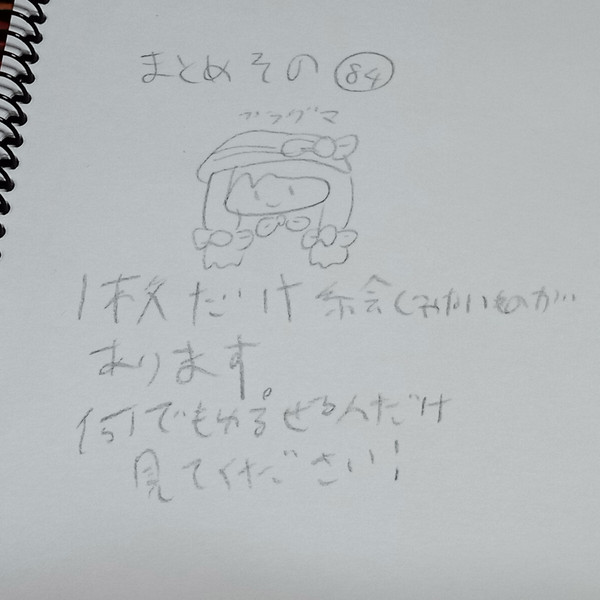 まとめその84
フラグマ
1枚だけ絵(みたいものが
あります。
何でもゆるせる人だけ
見てください!